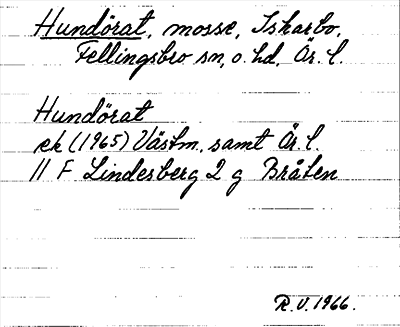 Hundörat, mosse, Iskärbo,
Fellingsbro sn, o. hd, Ör. l.
Hundörat
ek (1965) Västm. samt Ör. l.
11 F Lindesberg 2 g Bråten
R.V. 1966.